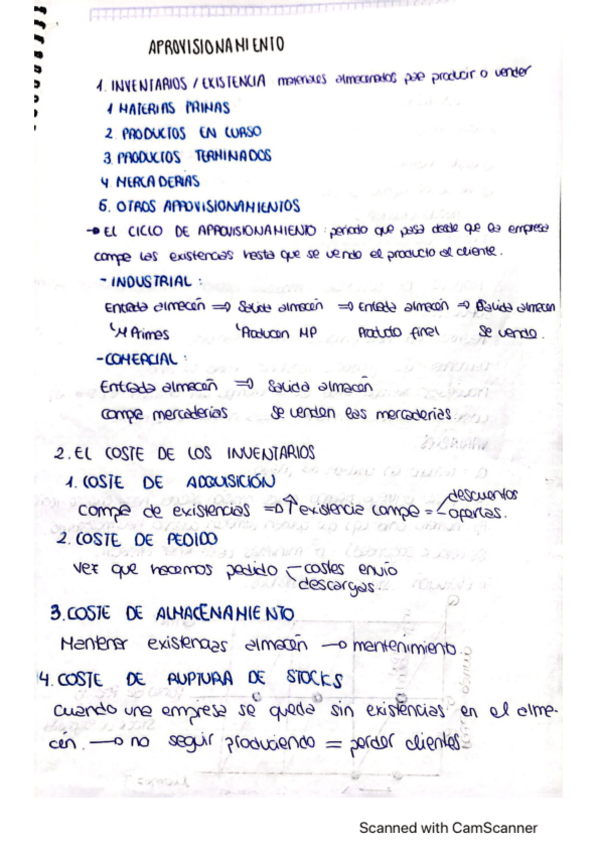 APROVISIONAMIENTO
1. INVENTARIOS / EXISTENCIA materiales almacenados para producir o vender
1 MATERIAS PRIMAS
2. PRODUCTOS EN CURSO
3. PRODUCTOS TERMINADOS
4 MERCADERÍAS
6. OTROS APROVISIONAMIENTOS
→ EL CICLO DE APROVISIONAMIENTO: periodo que pasa desde que la empresa
compra las existencias hasta que se vende el producto al cliente.
- INDUSTRIAL:
Entrada almacén ⇒ Salida almacén ⇒ Entrada almacén ⇒ Salida almacén
M Primas Producen MP Producto final Se vende.
- COMERCIAL:
Entrada almacén ⇒ Salida almacén
compra mercaderías se venden las mercaderías.
2. EL COSTE DE LOS INVENTARIOS
1. COSTE DE ADQUISICIÓN
Compra de existencias ⇒ ↑ existencia compra = descuentos
ofertas.
2. COSTE DE PEDIDO
Vez que hacemos pedido costes envío
descargas.
3. COSTE DE ALMACENAMIENTO
Mantener existencias almacén → mantenimiento.
4. COSTE DE RUPTURA DE STOCKS
Cuando una empresa se queda sin existencias en el alma-
cén. → no seguir produciendo = perder clientes.
Scanned with CamScanner